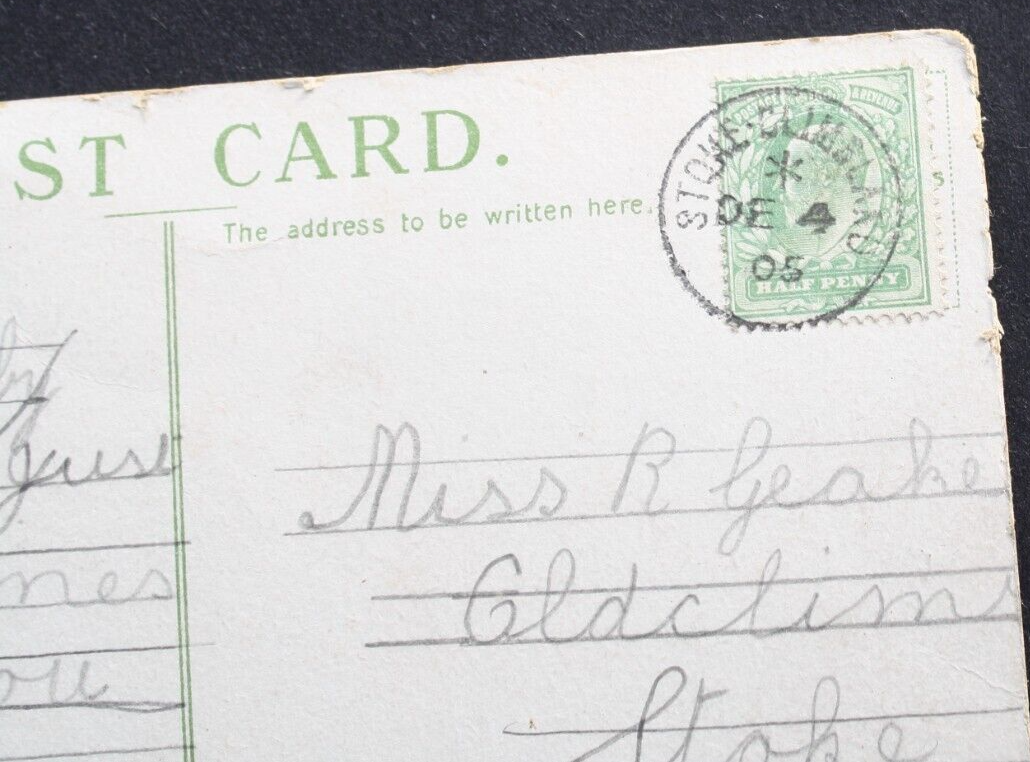 ST CARD.
The address to be written here.
POSTAGE & REVENUE
STOKE-CLIMSLAND
DE 4
05
HALF PENNY
Miss R Geake
Oldclims
Stoke
just
mes
ou